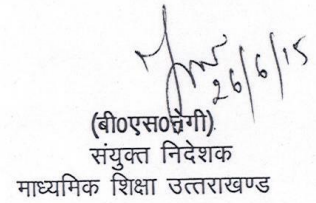 26/6/15
(बी0एस0नेगी)
संयुक्त निदेशक
माध्यमिक शिक्षा उत्तराखण्ड